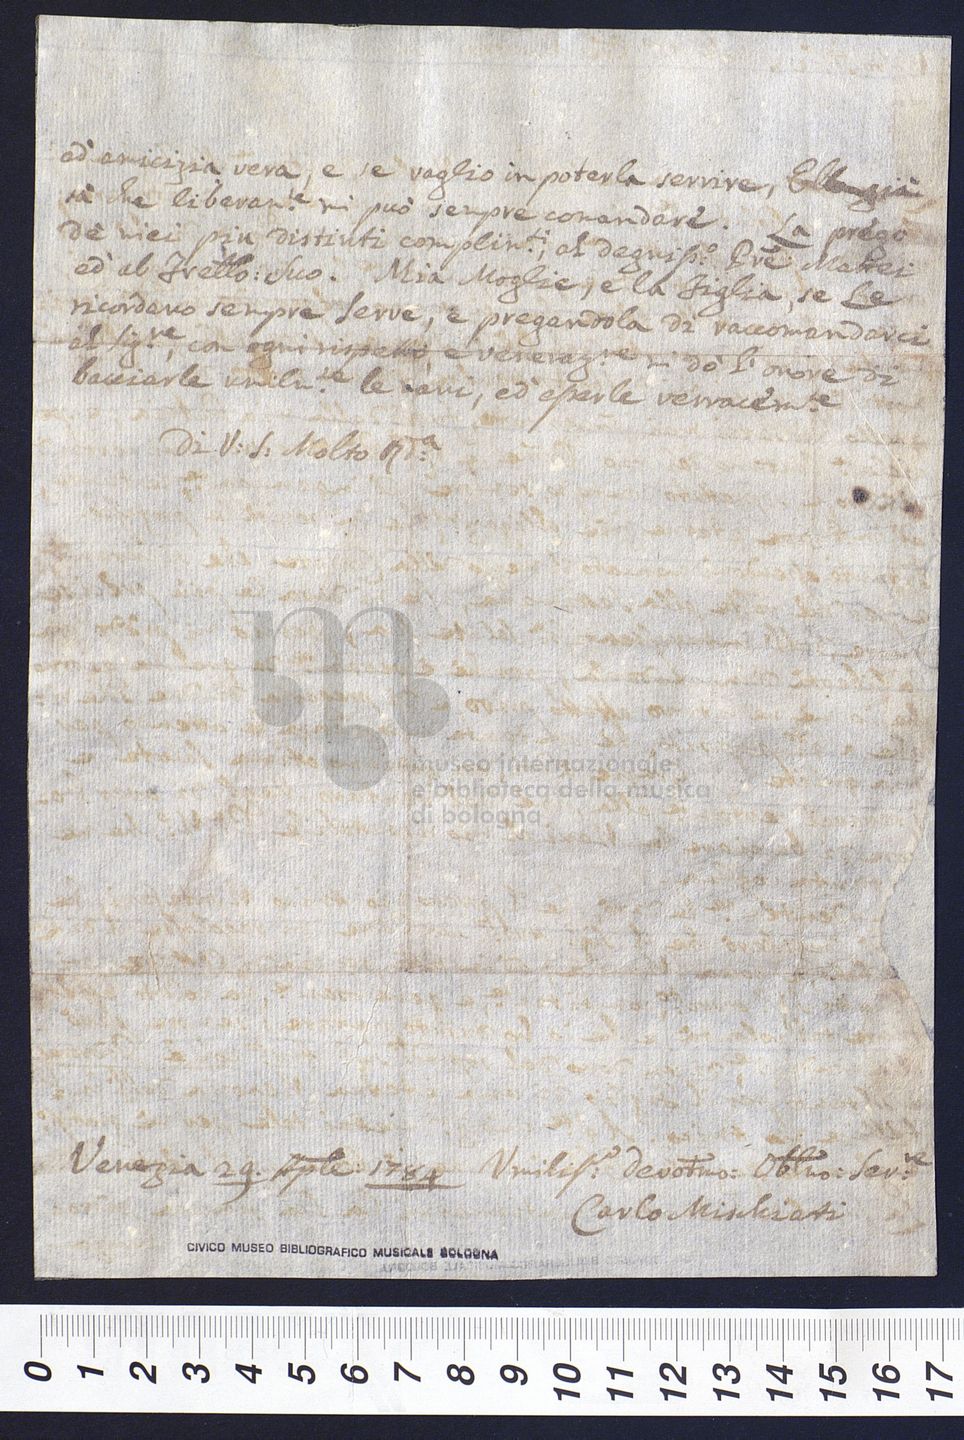 ed' amicizia vera, e se vaglio in poterla servire, Ella già
sà che liberam:te mi può sempre comandare. La prego
de miei piu distinti complim:ti, al degnis:o Pre Mattei
ed' al Frello: Suo. Mia Moglie, e la Figlia, se Le
ricordano sempre Serve, e pregandola di raccomandarci
al Sig:re, con ogni rispetto e veneraz:ne mi dò l'onore di
bacciarle umilm:te le mani, ed' esserle verracem:te
Di V: S: Molto Rd:a
Venezia 29. Aple 1784 Umilis:o devotmo: Obblmo: Ser:re
Carlo Mischiati
CIVICO MUSEO BIBLIOGRAFICO MUSICALE BOLOGNA
museo internazionale
e biblioteca della musica
di bologna
0 1 2 3 4 5 6 7 8 9 10 11 12 13 14 15 16 17